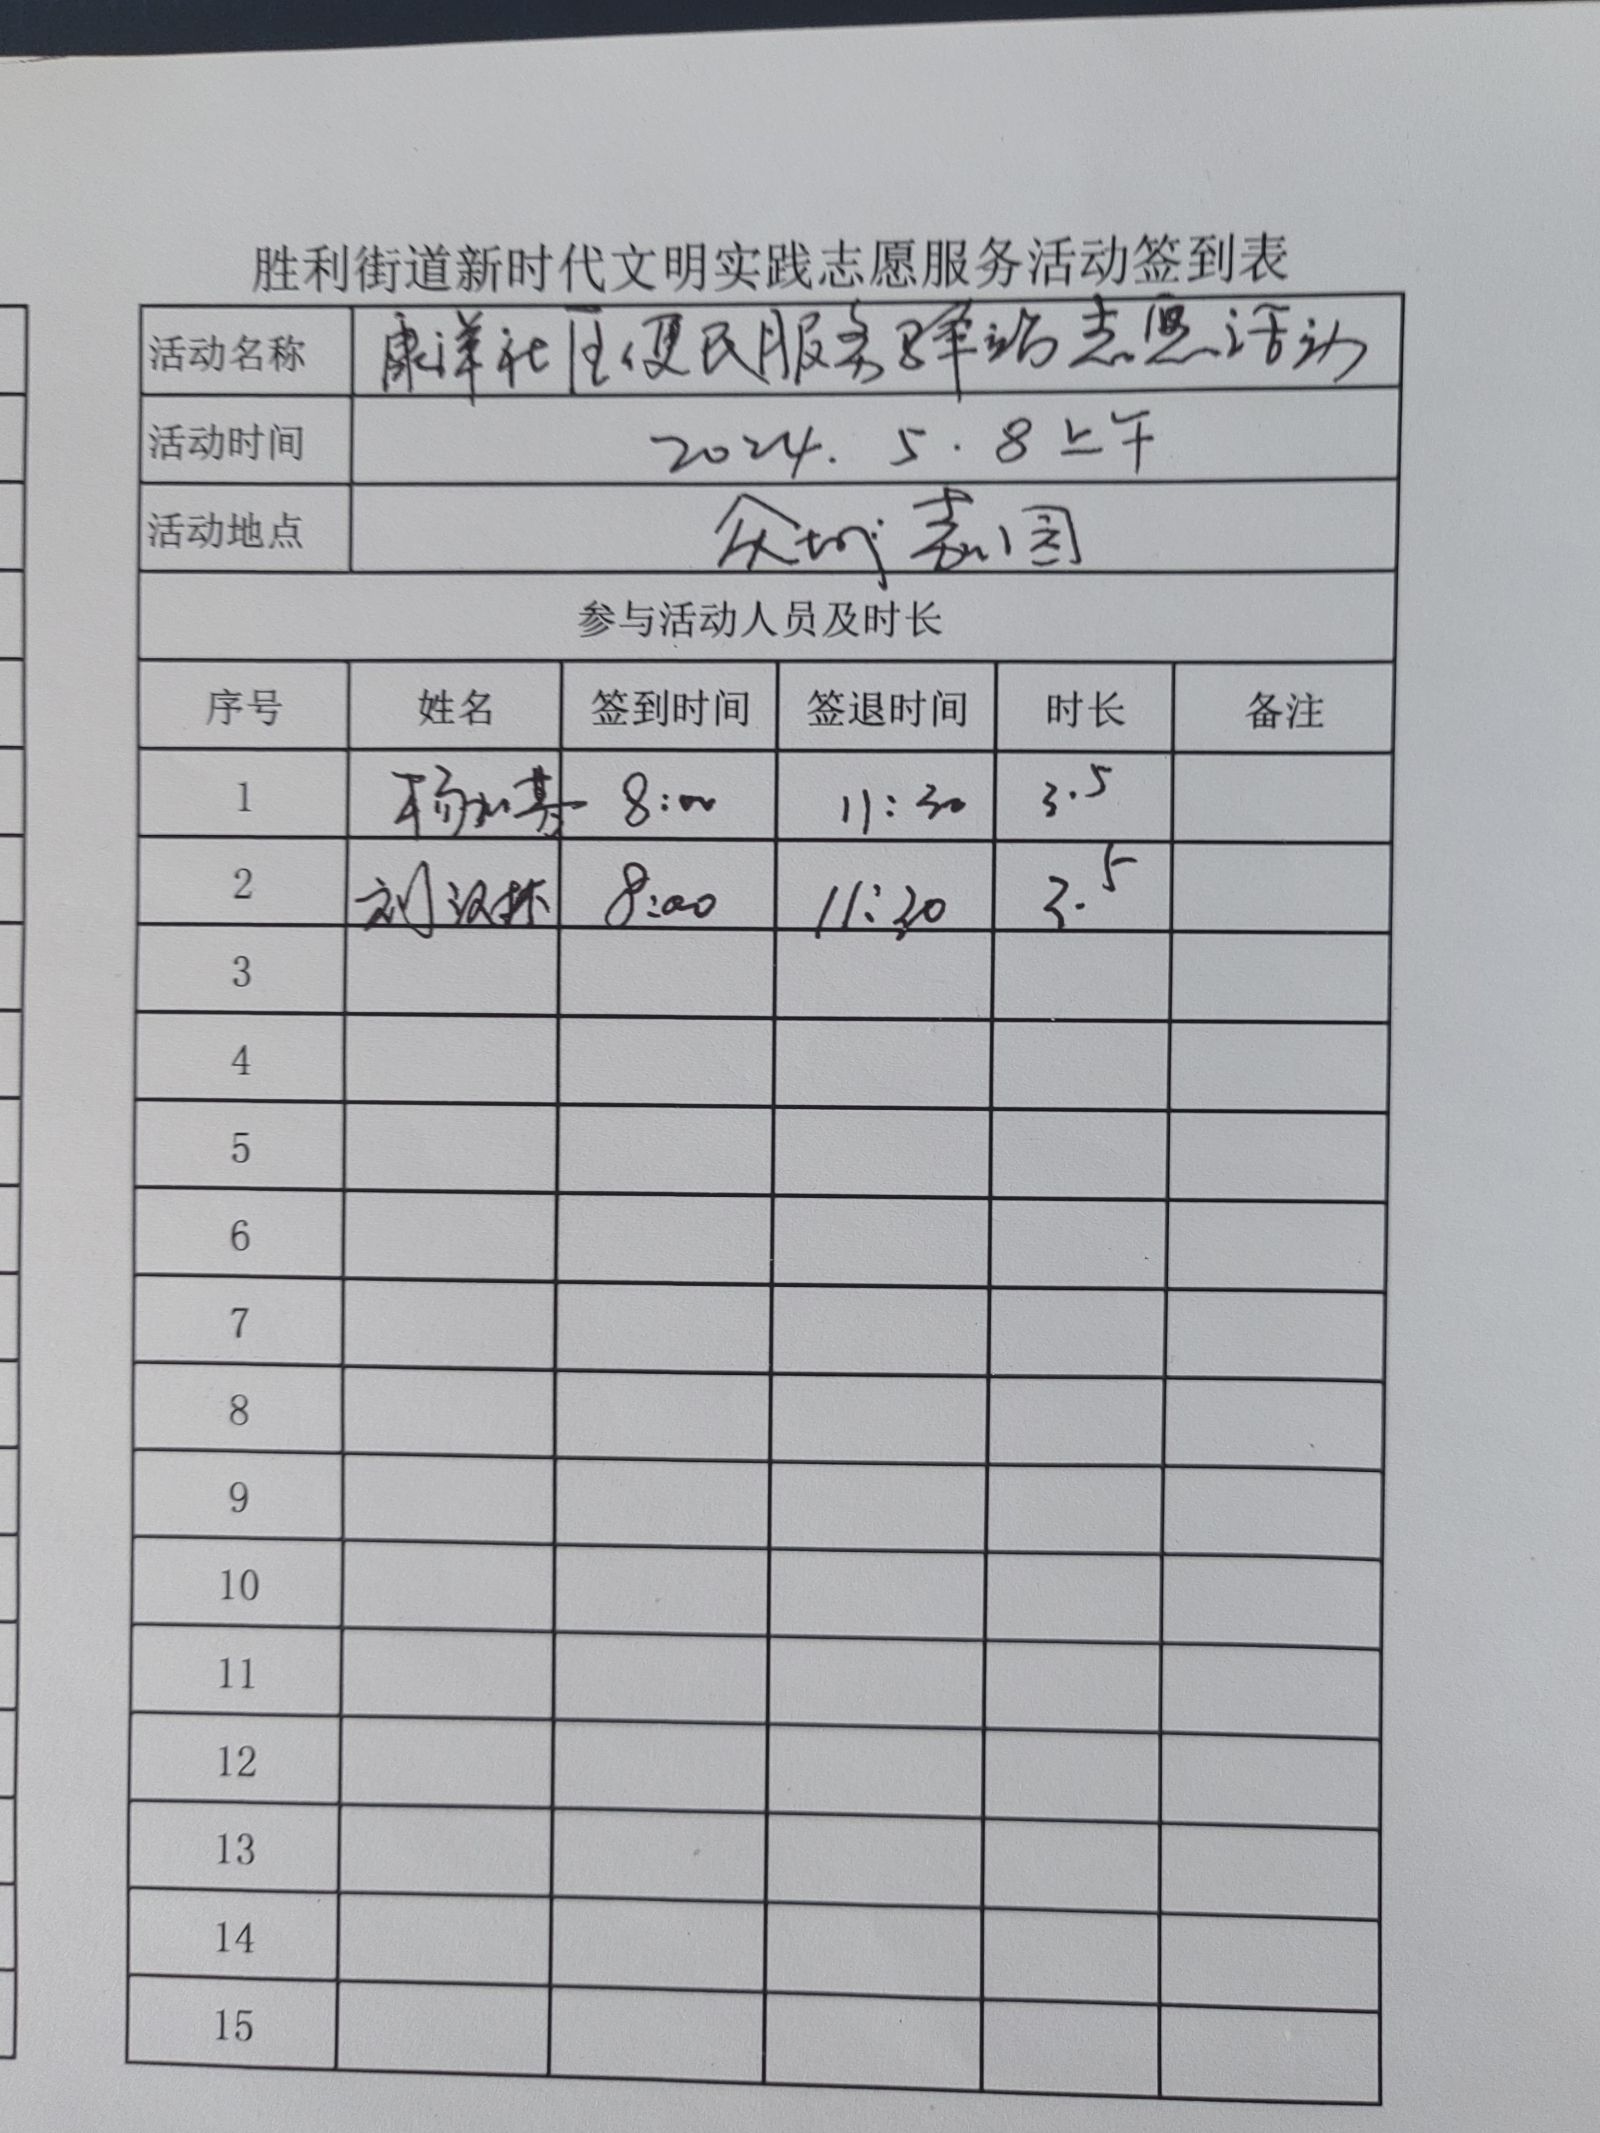 胜利街道新时代文明实践志愿服务活动签到表
活动名称 康洋社区便民服务驿站志愿活动
活动时间 2024.5.8上午
活动地点 众城嘉园
参与活动人员及时长
序号 姓名 签到时间 签退时间 时长 备注
1 杨 8:00 11:30 3.5
2 刘汉林 8:00 11:30 3.5
3
4
5
6
7
8
9
10
11
12
13
14
15